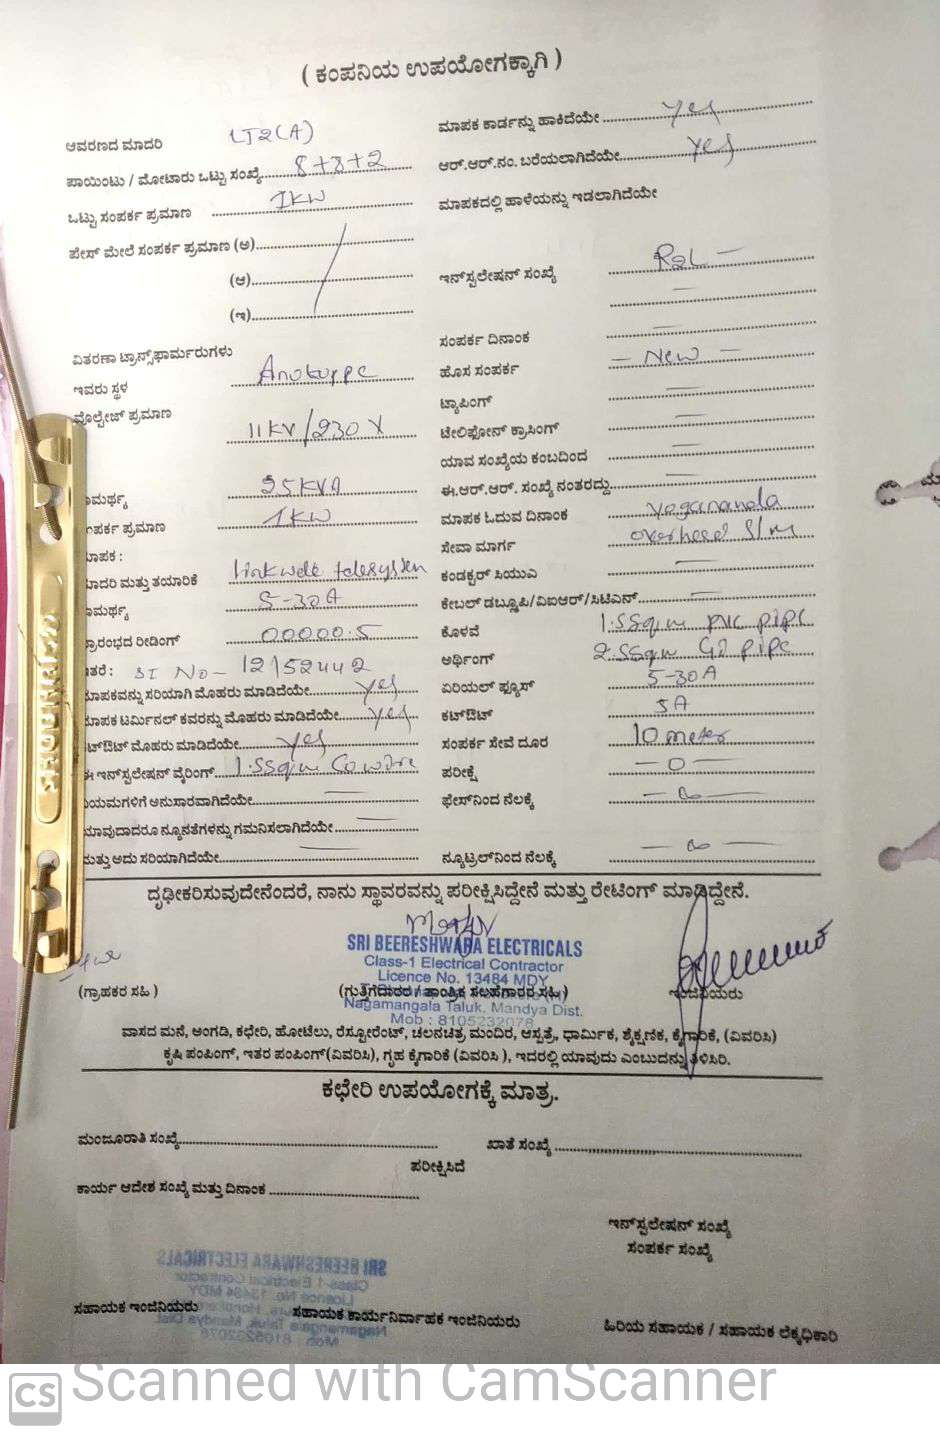 ( ಕಂಪನಿಯ ಉಪಯೋಗಕ್ಕಾಗಿ )
ಆವರಣದ ಮಾದರಿ LT2(A)
ಪಾಯಿಂಟು / ಮೋಟಾರು ಒಟ್ಟು ಸಂಖ್ಯೆ 8+8+2
ಒಟ್ಟು ಸಂಪರ್ಕ ಪ್ರಮಾಣ 1KW
ಪೇಸ್ ಮೇಲೆ ಸಂಪರ್ಕ ಪ್ರಮಾಣ (ಅ)
(ಆ)
(ಇ)
ವಿತರಣಾ ಟ್ರಾನ್ಸ್‌ಫಾರ್ಮರುಗಳು
ಇವರು ಸ್ಥಳ
ವೊಲ್ಟೇಜ್ ಪ್ರಮಾಣ 11KV/230V
ಾಮರ್ಥ್ಯ 25KVA
ಂಪರ್ಕ ಪ್ರಮಾಣ 1KW
ಾಪಕ :
ಾದರಿ ಮತ್ತು ತಯಾರಿಕೆ linkwell telesystem
ಾಮರ್ಥ್ಯ 5-30A
ಪ್ರಾರಂಭದ ರೀಡಿಂಗ್ 00000.5
ಇತರೆ : SI No- 12152442
ಾಪಕವನ್ನು ಸರಿಯಾಗಿ ಮೊಹರು ಮಾಡಿದೆಯೇ yes
ಾಪಕ ಟರ್ಮಿನಲ್ ಕವರನ್ನು ಮೊಹರು ಮಾಡಿದೆಯೇ yes
ಟ್‌ಔಟ್ ಮೊಹರು ಮಾಡಿದೆಯೇ yes
ಈ ಇನ್‌ಸ್ಟಲೇಷನ್ ವೈರಿಂಗ್ 1.5Sqm Cowire
ನಿಯಮಗಳಿಗೆ ಅನುಸಾರವಾಗಿದೆಯೇ
ಯಾವುದಾದರೂ ನ್ಯೂನತೆಗಳನ್ನು ಗಮನಿಸಲಾಗಿದೆಯೇ
ಮತ್ತು ಅದು ಸರಿಯಾಗಿದೆಯೇ
ಮಾಪಕ ಕಾರ್ಡನ್ನು ಹಾಕಿದೆಯೇ yes
ಆರ್.ಆರ್.ನಂ. ಬರೆಯಲಾಗಿದೆಯೇ yes
ಮಾಪಕದಲ್ಲಿ ಹಾಳೆಯನ್ನು ಇಡಲಾಗಿದೆಯೇ
ಇನ್‌ಸ್ಟಲೇಷನ್ ಸಂಖ್ಯೆ R2L -
ಸಂಪರ್ಕ ದಿನಾಂಕ
ಹೊಸ ಸಂಪರ್ಕ - New -
ಟ್ಯಾಪಿಂಗ್
ಟೇಲಿಫೋನ್ ಕ್ರಾಸಿಂಗ್
ಯಾವ ಸಂಖ್ಯೆಯ ಕಂಬದಿಂದ
ಈ.ಆರ್.ಆರ್. ಸಂಖ್ಯೆ ನಂತರದ್ದು
ಮಾಪಕ ಓದುವ ದಿನಾಂಕ yogananda
ಸೇವಾ ಮಾರ್ಗ overhead S/m
ಕಂಡಕ್ಟರ್ ಸಿಯುವಿ
ಕೇಬಲ್ ಡಬ್ಲೂಪಿ/ವಿಐಆರ್/ಸಿಟಿಎನ್
ಕೊಳವೆ 1.5Sqm pvc pipe
ಅರ್ಥಿಂಗ್ 2.5Sqm GI pipe
ಏರಿಯಲ್ ಫ್ಯೂಸ್ 5-30A
ಕಟ್‌ಔಟ್ 5A
ಸಂಪರ್ಕ ಸೇವೆ ದೂರ 10 meter
ಪರೀಕ್ಷೆ - 0 -
ಫೇಸ್‌ನಿಂದ ನೆಲಕ್ಕೆ
ನ್ಯೂಟ್ರಲ್‌ನಿಂದ ನೆಲಕ್ಕೆ
ದೃಢೀಕರಿಸುವುದೇನೆಂದರೆ, ನಾನು ಸ್ಥಾವರವನ್ನು ಪರೀಕ್ಷಿಸಿದ್ದೇನೆ ಮತ್ತು ರೇಟಿಂಗ್ ಮಾಡಿದ್ದೇನೆ.
SRI BEERESHWARA ELECTRICALS
Class-1 Electrical Contractor
Licence No. 13484 MDY
(ಗ್ರಾಹಕರ ಸಹಿ ) (ಗುತ್ತಿಗೆದಾರರ / ತಾಂತ್ರಿಕ ಸಲಹೆಗಾರರ ಸಹಿ) ಇಂಜಿನಿಯರು
Nagamangala Taluk, Mandya Dist.
Mob : 8105232078
ವಾಸದ ಮನೆ, ಅಂಗಡಿ, ಕಛೇರಿ, ಹೋಟೆಲು, ರೆಸ್ಟೋರೆಂಟ್, ಚಲನಚಿತ್ರ ಮಂದಿರ, ಆಸ್ಪತ್ರೆ, ಧಾರ್ಮಿಕ, ಶೈಕ್ಷಣಿಕ, ಕೈಗಾರಿಕೆ, (ವಿವರಿಸಿ)
ಕೃಷಿ ಪಂಪಿಂಗ್, ಇತರ ಪಂಪಿಂಗ್(ವಿವರಿಸಿ), ಗೃಹ ಕೈಗಾರಿಕೆ (ವಿವರಿಸಿ ), ಇದರಲ್ಲಿ ಯಾವುದು ಎಂಬುದನ್ನು ತಿಳಿಸಿರಿ.
ಕಛೇರಿ ಉಪಯೋಗಕ್ಕೆ ಮಾತ್ರ.
ಮಂಜೂರಾತಿ ಸಂಖ್ಯೆ ಖಾತೆ ಸಂಖ್ಯೆ
ಪರೀಕ್ಷಿಸಿದೆ
ಕಾರ್ಯ ಆದೇಶ ಸಂಖ್ಯೆ ಮತ್ತು ದಿನಾಂಕ
ಇನ್‌ಸ್ಟಲೇಷನ್ ಸಂಖ್ಯೆ
ಸಂಪರ್ಕ ಸಂಖ್ಯೆ
ಸಹಾಯಕ ಇಂಜಿನಿಯರು ಸಹಾಯಕ ಕಾರ್ಯನಿರ್ವಾಹಕ ಇಂಜಿನಿಯರು ಹಿರಿಯ ಸಹಾಯಕ / ಸಹಾಯಕ ಲೆಕ್ಕಧಿಕಾರಿ
CS Scanned with CamScanner